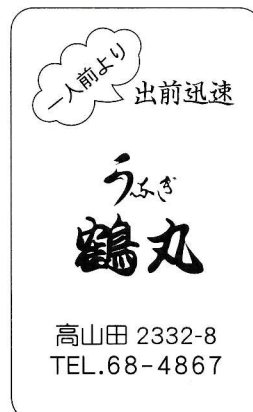 一人前より
出前迅速
うなぎ
鶴丸
高山田 2332-8
TEL.68-4867